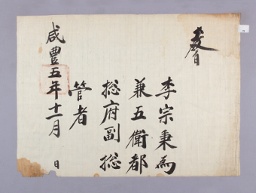 李宗秉爲
兼五衛都
摠府副摠
管者
咸豐五年十一月 日